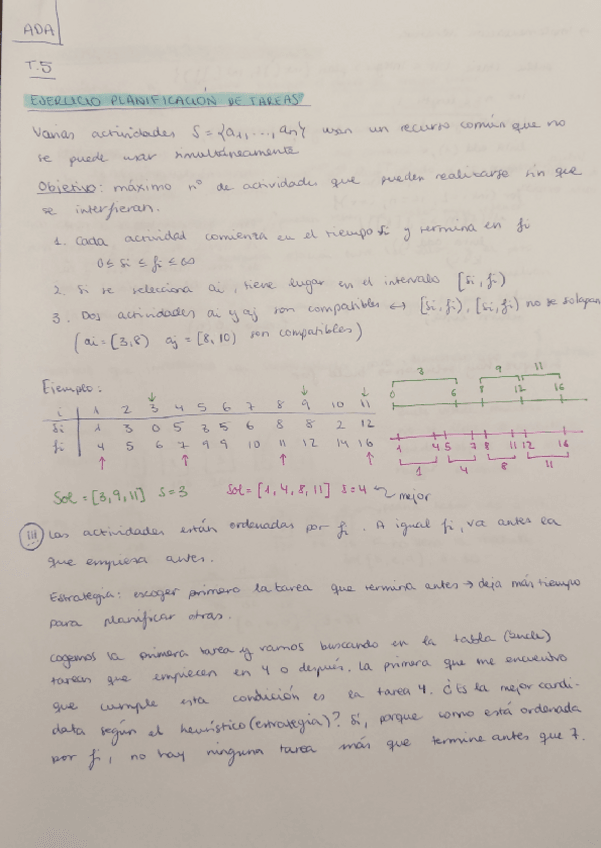 ADA
T.5
EJERCICIO PLANIFICACIÓN DE TAREAS
Varias actividades S = {a1, ..., an} usan un recurso común que no
se puede usar simultáneamente
Objetivo: máximo nº de actividades que pueden realizarse sin que
se interfieran.
1. Cada actividad comienza en el tiempo si y termina en fi
0 ≤ si ≤ fi ≤ ∞
2. Si se selecciona ai, tiene lugar en el intervalo [si, fi)
3. Dos actividades ai y aj son compatibles ↔ [si, fi), [sj, fj) no se solapan
(ai = [3,8) aj = [8,10) son compatibles)
Ejemplo:
3 9 11
0 6 8 12 16
i 1 2 3 4 5 6 7 8 9 10 11
si 1 3 0 5 3 5 6 8 8 2 12
fi 4 5 6 7 9 9 10 11 12 14 16
1 4 5 7 8 11 12 16
1 4 8 11
Sol = [3, 9, 11] s = 3 Sol = [1, 4, 8, 11] s = 4 mejor
!!! Las actividades están ordenadas por fi. A igual fi, va antes la
que empieza antes.
Estrategia: escoger primero la tarea que termina antes → deja más tiempo
para planificar otras.
Cogemos la primera tarea y vamos buscando en la tabla (bucle)
tareas que empiecen en 4 o después. La primera que me encuentro
que cumple esta condición es la tarea 4. ¿Es la mejor candi-
data según el heurístico (estrategia)? Sí, porque como está ordenada
por fi, no hay ninguna tarea más que termine antes que 7.